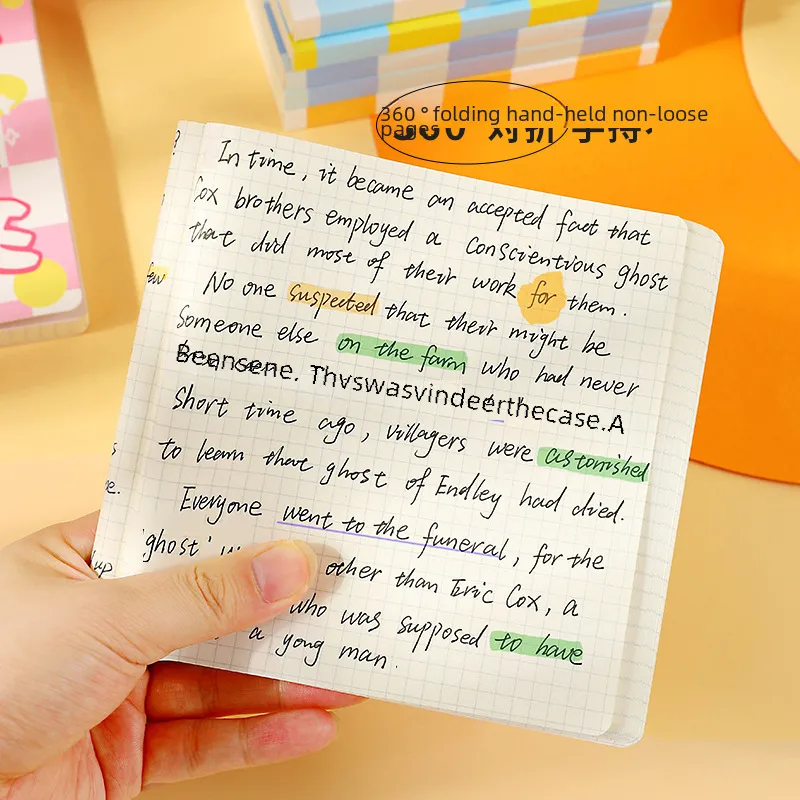 360 ° folding hand-held non-loose
pages
In time, it became an accepted fact that
Cox brothers employed a conscientious ghost
that did most of their work for them.
few
No one suspected that their might be
Someone else on the farm who had never
Beensene. Thvswasvindeerthecase.A
Short time ago, villagers were astonished
to learn that ghost of Endley had died.
Everyone went to the funeral, for the
'ghost' other than Eric Cox, a
who was supposed to have
a yong man.